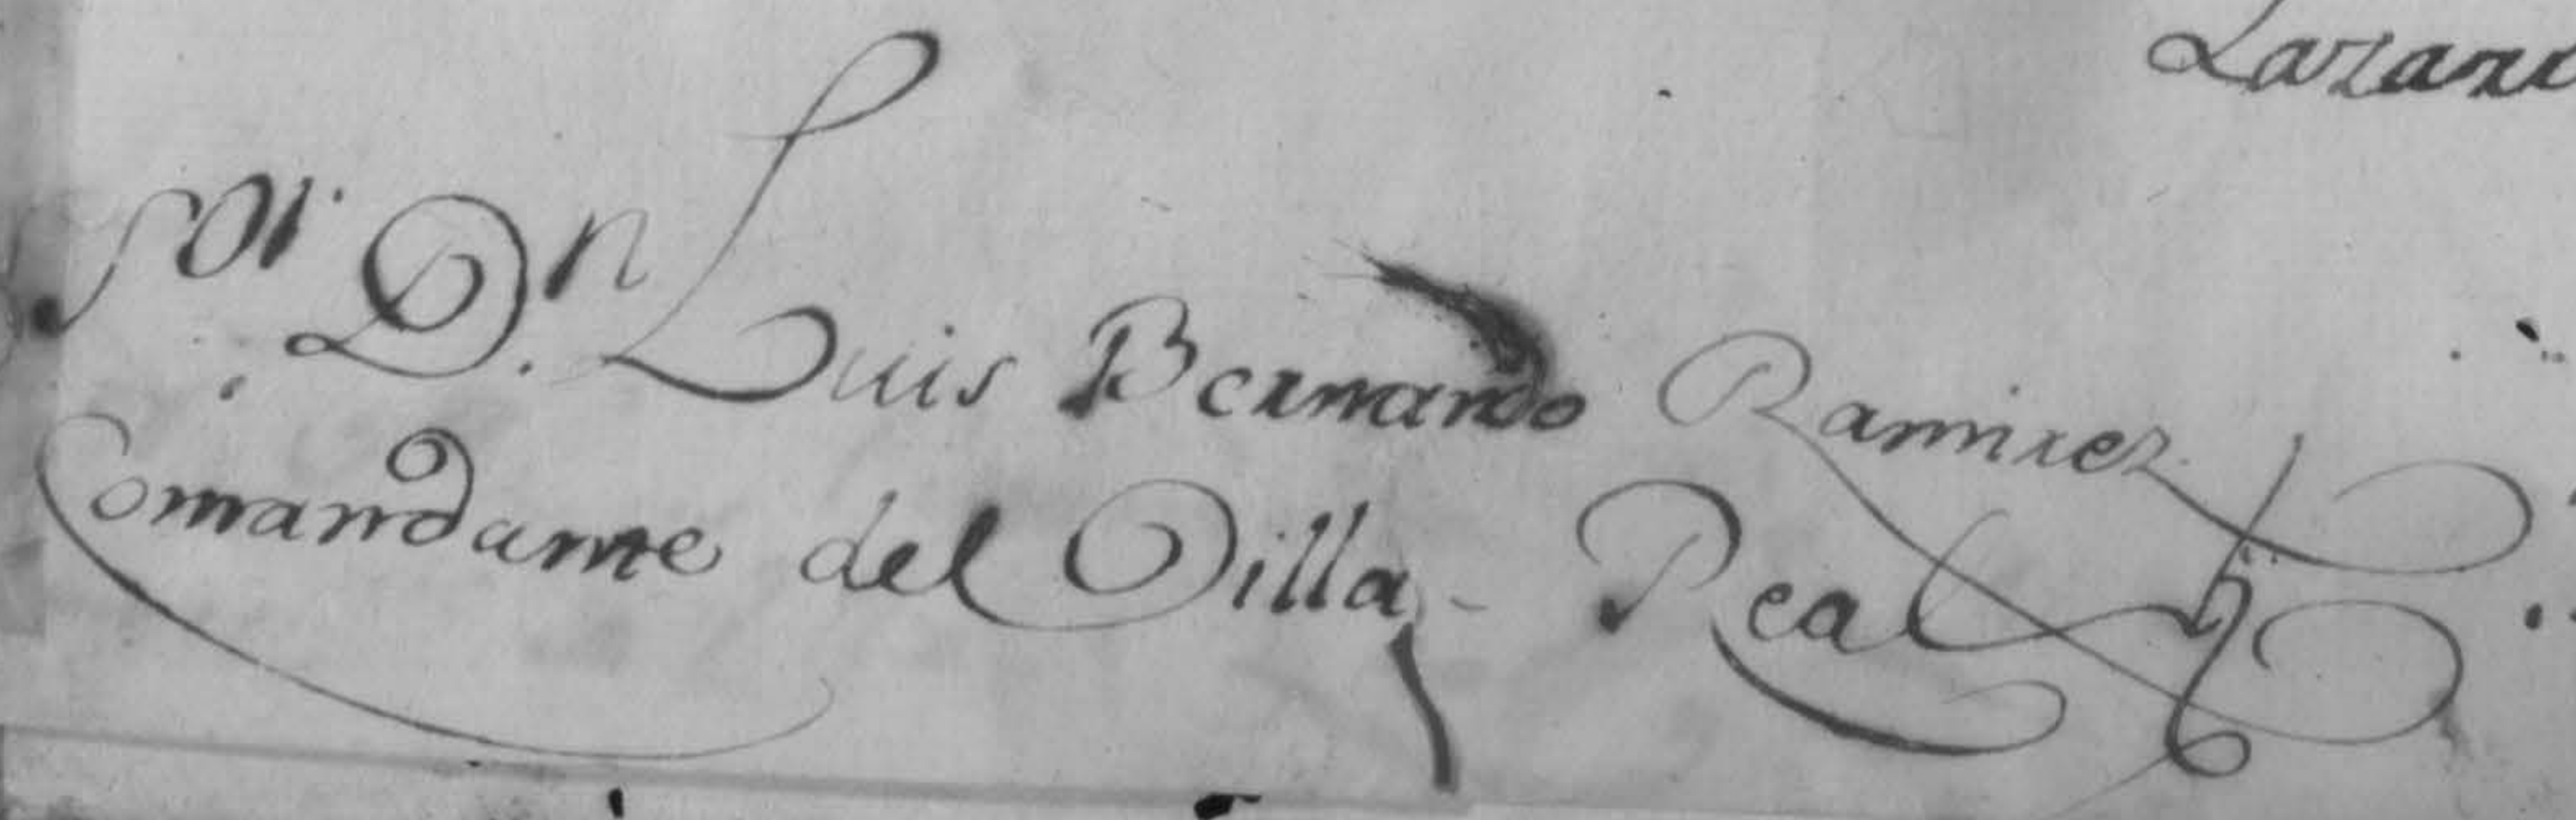 Lazaro
Sor. Dn. Luis Bernardo Ramirez
Comandante del Villa-Real